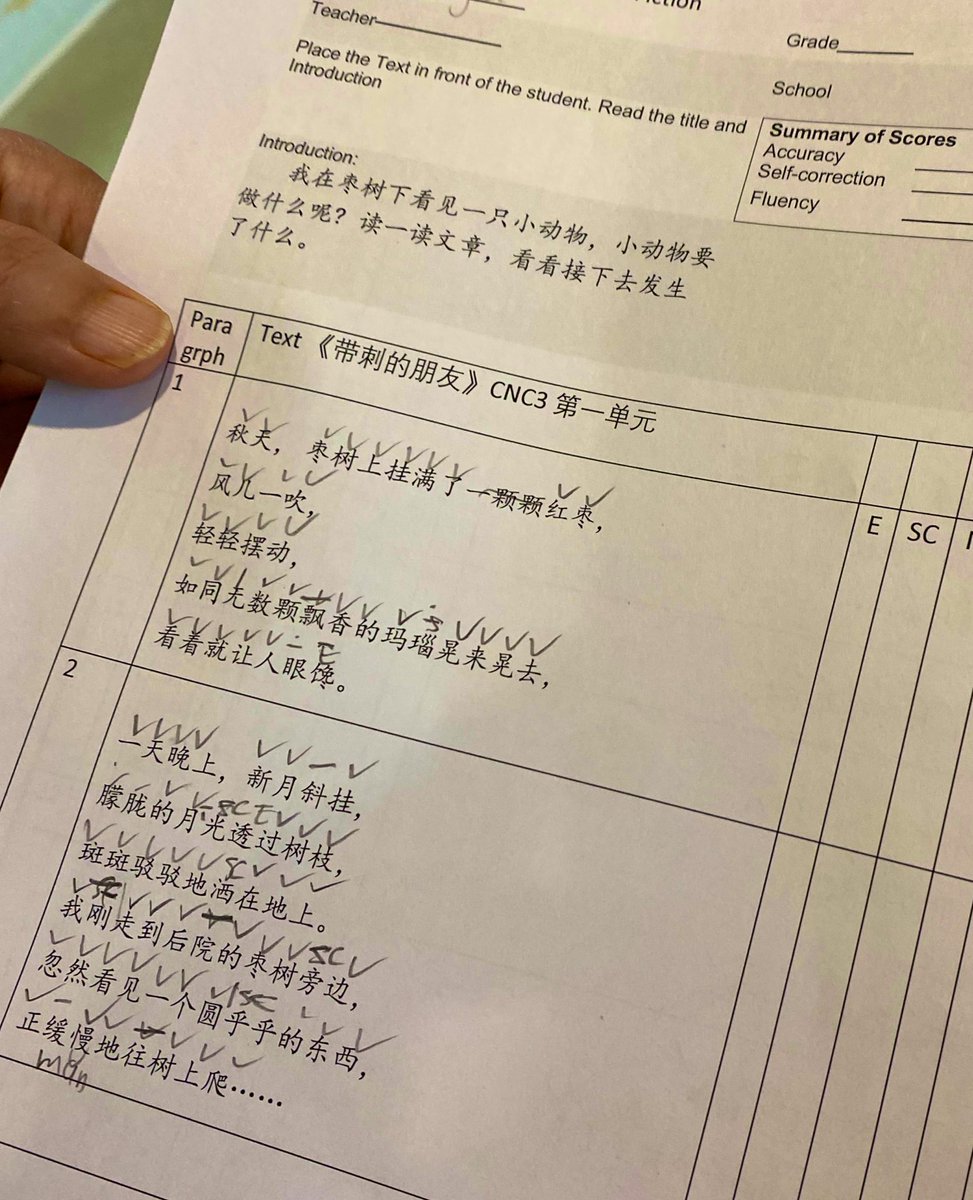 Teacher
Grade
Place the Text in front of the student. Read the title and
Introduction
School
Summary of Scores
Accuracy
Self-correction
Fluency
Introduction:
我在枣树下看见一只小动物，小动物要
做什么呢？读一读文章，看看接下去发生
了什么。
Para
grph
Text 《带刺的朋友》CNC3 第一单元
1
E
SC
秋天，枣树上挂满了一颗颗红枣，
风儿一吹，
轻轻摆动，
如同无数颗飘香的玛瑙晃来晃去，
看着就让人眼馋。
E
2
一天晚上，新月斜挂，
朦胧的月光透过树枝，
SC E
斑斑驳驳地洒在地上。
SC
我刚走到后院的枣树旁边，
SC
SC
忽然看见一个圆乎乎的东西，
SC
正缓慢地往树上爬……
man